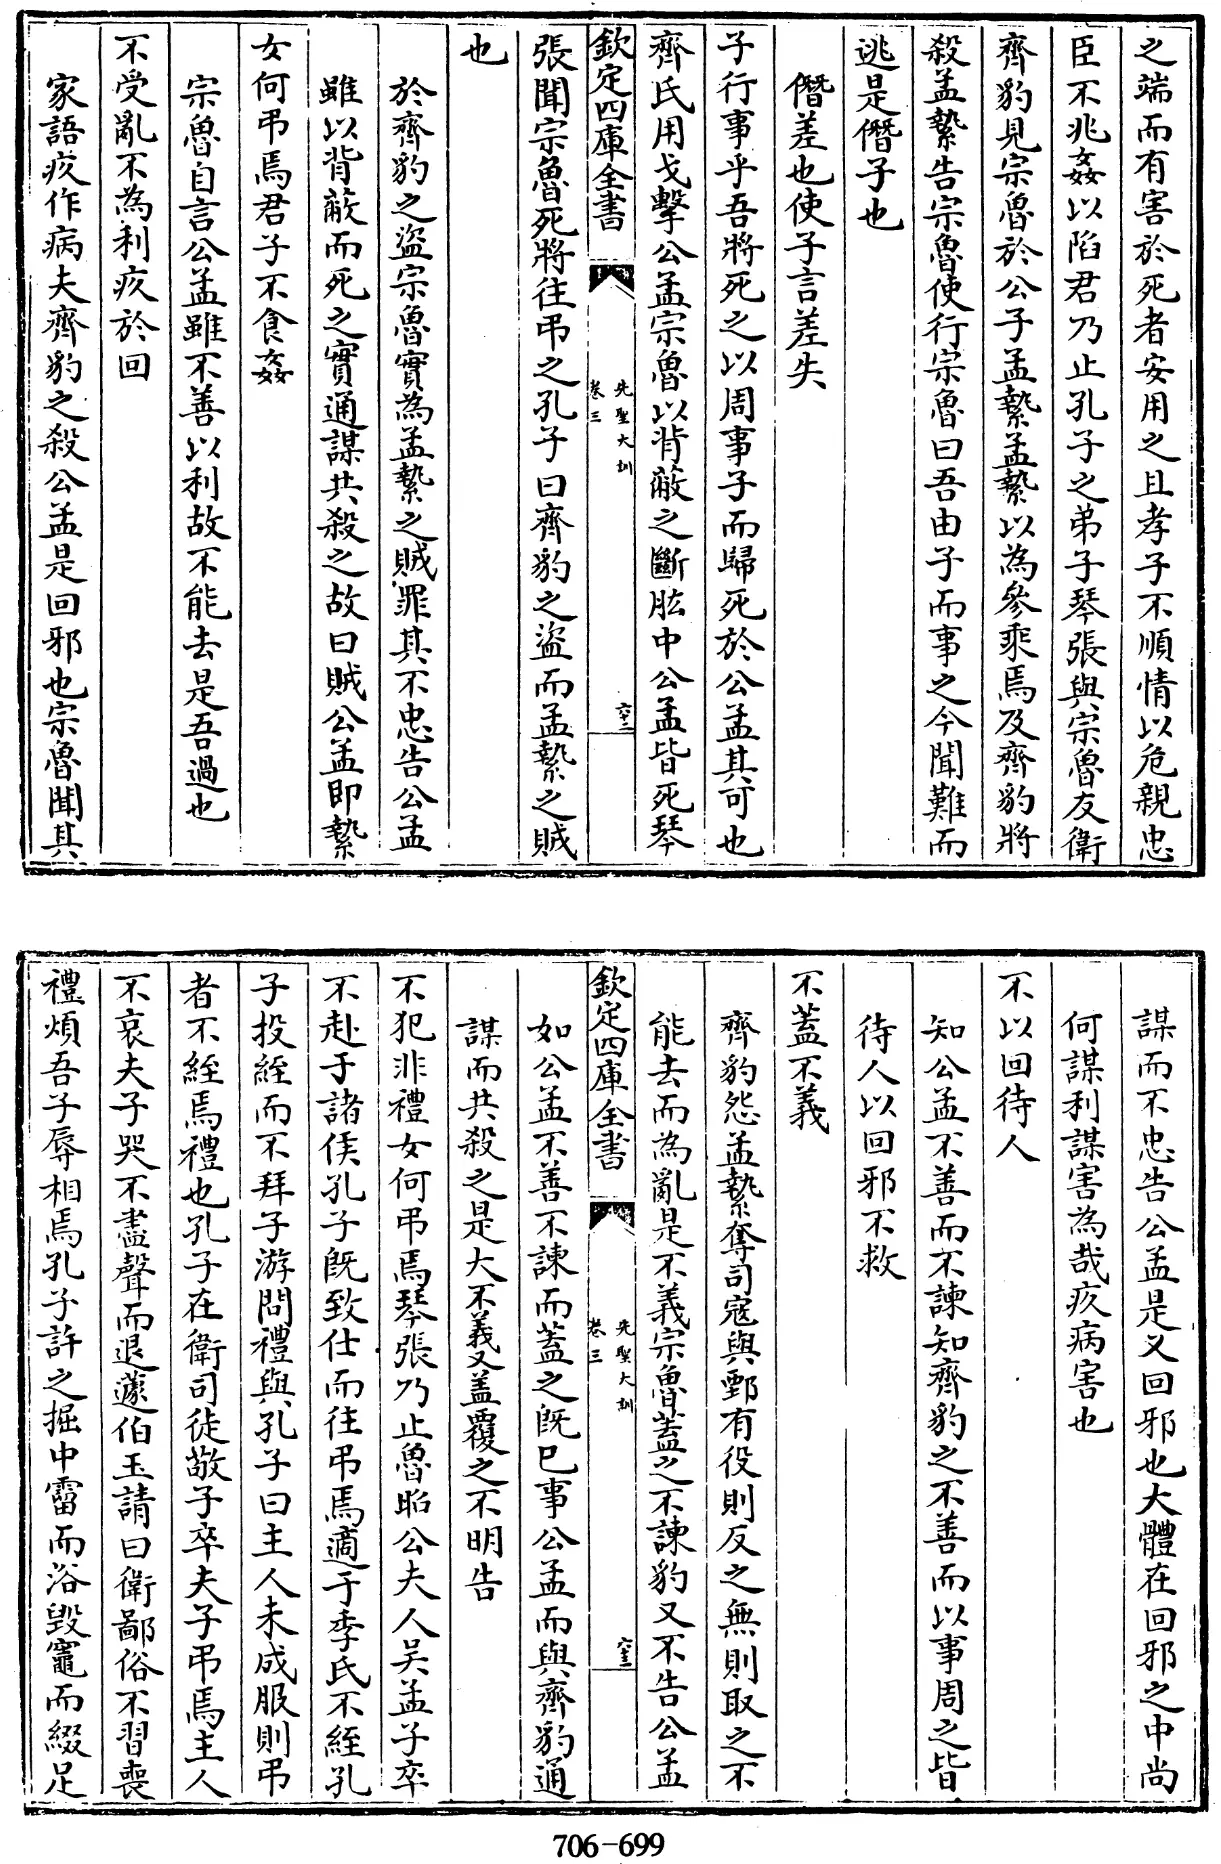 之端而有害於死者安用之且孝子不順情以危親忠
臣不兆姦以陷君乃止孔子之弟子琴張與宗魯友衛
齊豹見宗魯於公子孟縶孟縶以為參乘焉及齊豹將
殺孟縶告宗魯使行宗魯曰吾由子而事之今聞難而
逃是僭子也
僭差也使子言差失
子行事乎吾將死之以周事子而歸死於公孟其可也
齊氏用戈擊公孟宗魯以背蔽之斷肱中公孟皆死琴
欽定四庫全書
先聖大訓
卷三
六十二
張聞宗魯死將往弔之孔子曰齊豹之盜而孟縶之賊
也
於齊豹之盜宗魯實為孟縶之賊罪其不忠告公孟
雖以背蔽而死之實通謀共殺之故曰賊公孟即縶
女何弔焉君子不食姦
宗魯自言公孟雖不善以利故不能去是吾過也
不受亂不為利疚於回
家語疚作病夫齊豹之殺公孟是回邪也宗魯聞其
謀而不忠告公孟是又回邪也大體在回邪之中尚
何謀利謀害為哉疚病害也
不以回待人
知公孟不善而不諫知齊豹之不善而以事周之皆
待人以回邪不救
不蓋不義
齊豹怨孟縶奪司寇與鄄有役則反之無則取之不
能去而為亂是不義宗魯蓋之不諫豹又不告公孟
欽定四庫全書
先聖大訓
卷三
六十三
如公孟不善不諫而蓋之既已事公孟而與齊豹通
謀而共殺之是大不義又蓋覆之不明告
不犯非禮女何弔焉琴張乃止魯昭公夫人吴孟子卒
不赴于諸侯孔子既致仕而往弔焉適于季氏不絰孔
子投絰而不拜子游問禮與孔子曰主人未成服則弔
者不絰焉禮也孔子在衛司徒敬子卒夫子弔焉主人
不哀夫子哭不盡聲而退蘧伯玉請曰衛鄙俗不習喪
禮煩吾子辱相焉孔子許之掘中霤而浴毀竈而綴足
706-699